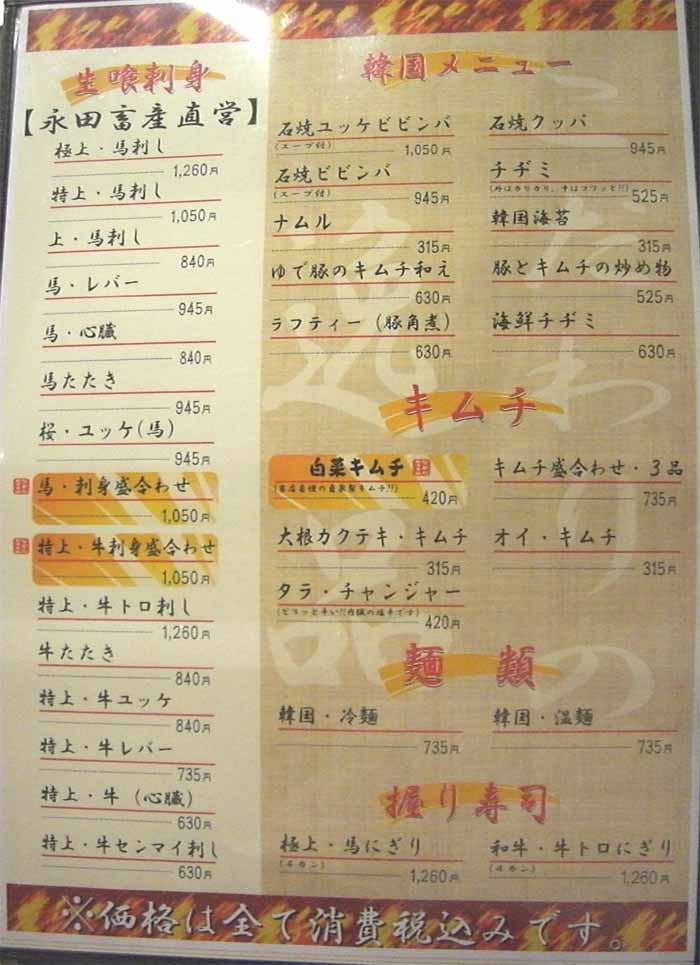 生喰刺身
【永田畜産直営】
極上・馬刺し
1,260円
特上・馬刺し
1,050円
上・馬刺し
840円
馬・レバー
945円
馬・心臓
840円
馬たたき
945円
桜・ユッケ(馬)
945円
馬・刺身盛合わせ
1,050円
特上・牛刺身盛合わせ
1,050円
特上・牛トロ刺し
1,260円
牛たたき
840円
特上・牛ユッケ
840円
特上・牛レバー
735円
特上・牛(心臓)
630円
特上・牛センマイ刺し
630円
韓国メニュー
石焼ユッケビビンバ
(スープ付)
1,050円
石焼ビビンバ
(スープ付)
945円
ナムル
315円
ゆで豚のキムチ和え
630円
ラフティー(豚角煮)
630円
石焼クッパ
945円
チヂミ
(外はカリカリ、中はフワッと!!)
525円
韓国海苔
315円
豚とキムチの炒め物
525円
海鮮チヂミ
630円
キムチ
白菜キムチ
(当店自慢の自家製キムチ!!)
420円
大根カクテキ・キムチ
315円
タラ・チャンジャー
(ピリッと辛い!!内臓の塩辛です)
420円
キムチ盛合わせ・3品
735円
オイ・キムチ
315円
麺類
韓国・冷麺
735円
韓国・温麺
735円
握り寿司
極上・馬にぎり
(4カン)
1,260円
和牛・牛トロにぎり
(4カン)
1,260円
こだわりの
逸品
※価格は全て消費税込みです。